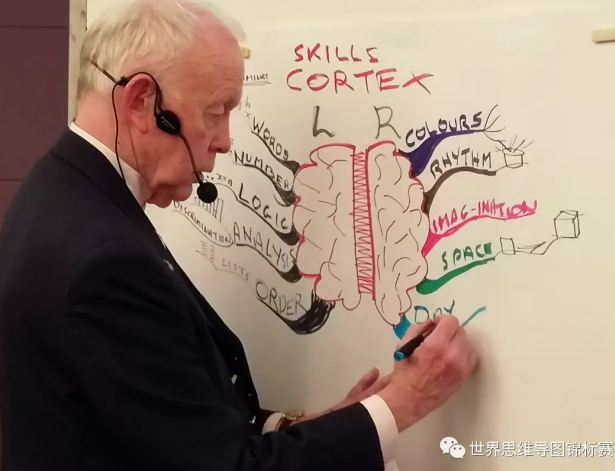 SKILLS
CORTEX
L R
WORDS
NUMBER
LOGIC
ANALYSIS
DISCRIMINATION
LISTS
ORDER
COLOURS
RHYTHM
IMAG-INATION
SPACE
DAY
世界思维导图锦标赛